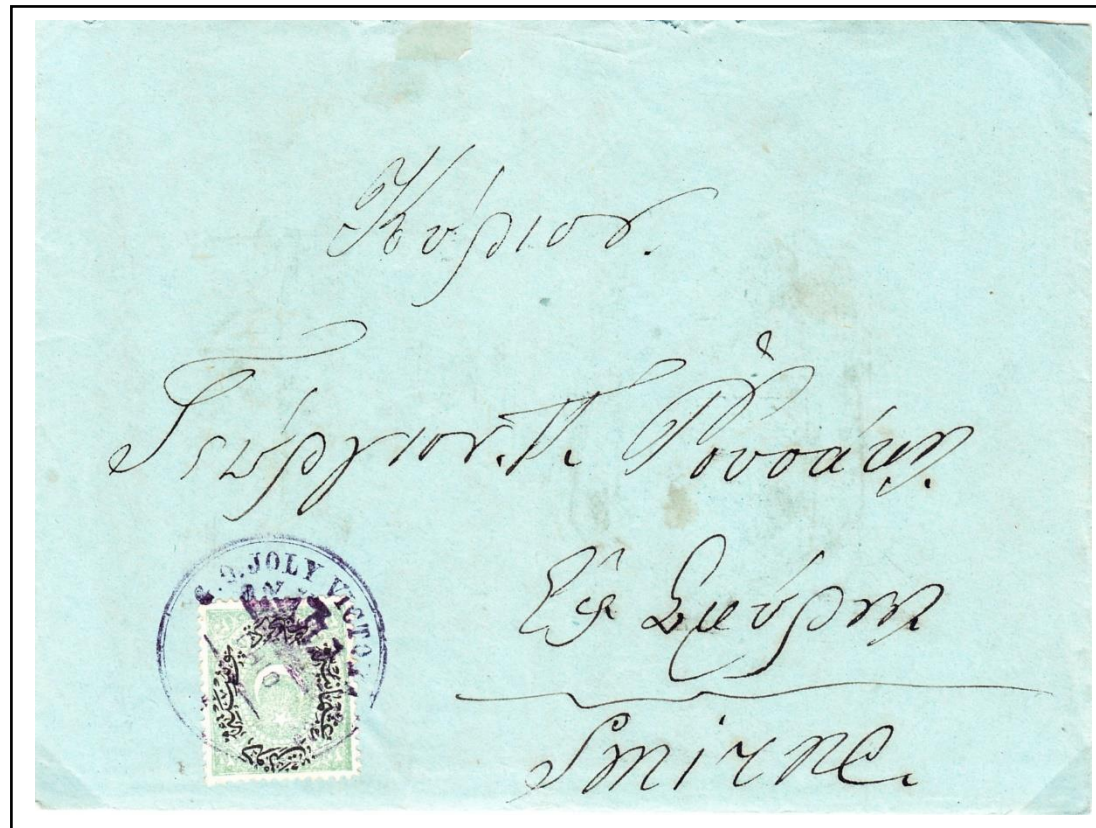 Κύριον.
Γεώργιον. Π. Ῥουσάκην.
Εἰς Σμύρνην.
Smirne.
JOLY VICTO